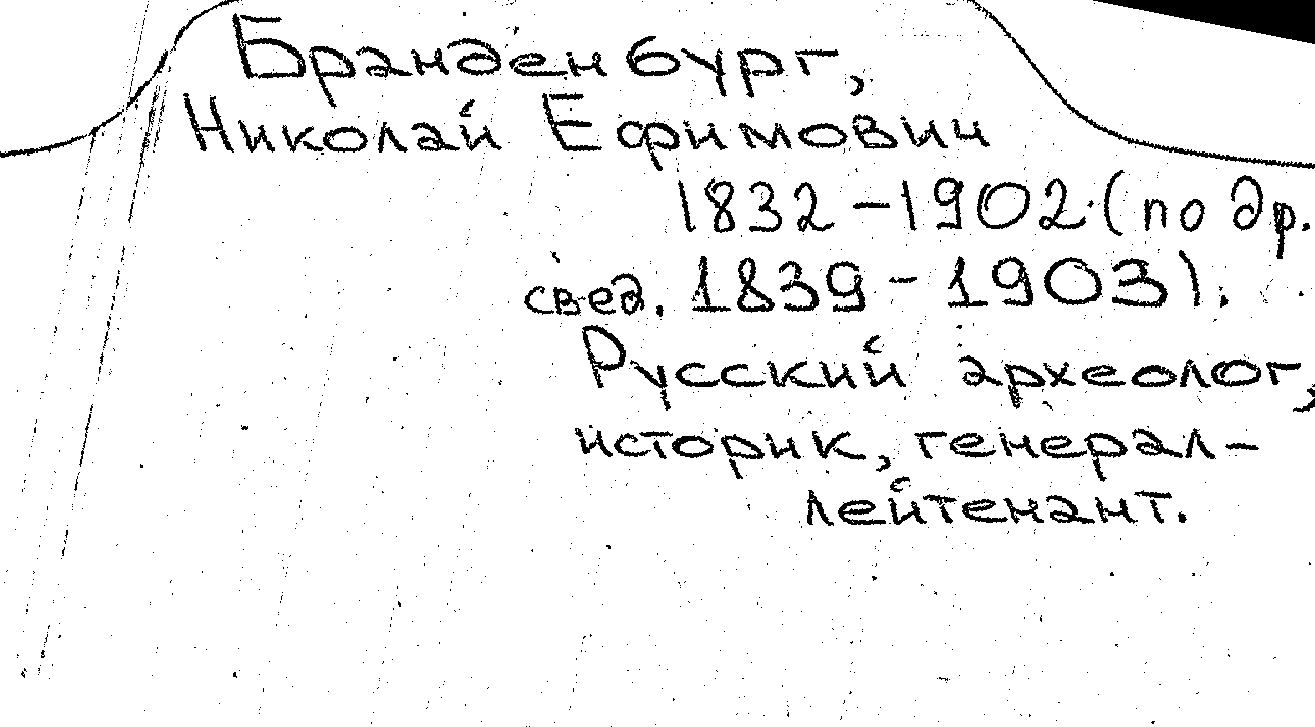 Бранденбург,
Николай Ефимович
1832-1902 (по др.
свед. 1839-1903).
Русский археолог,
историк, генерал-
лейтенант.